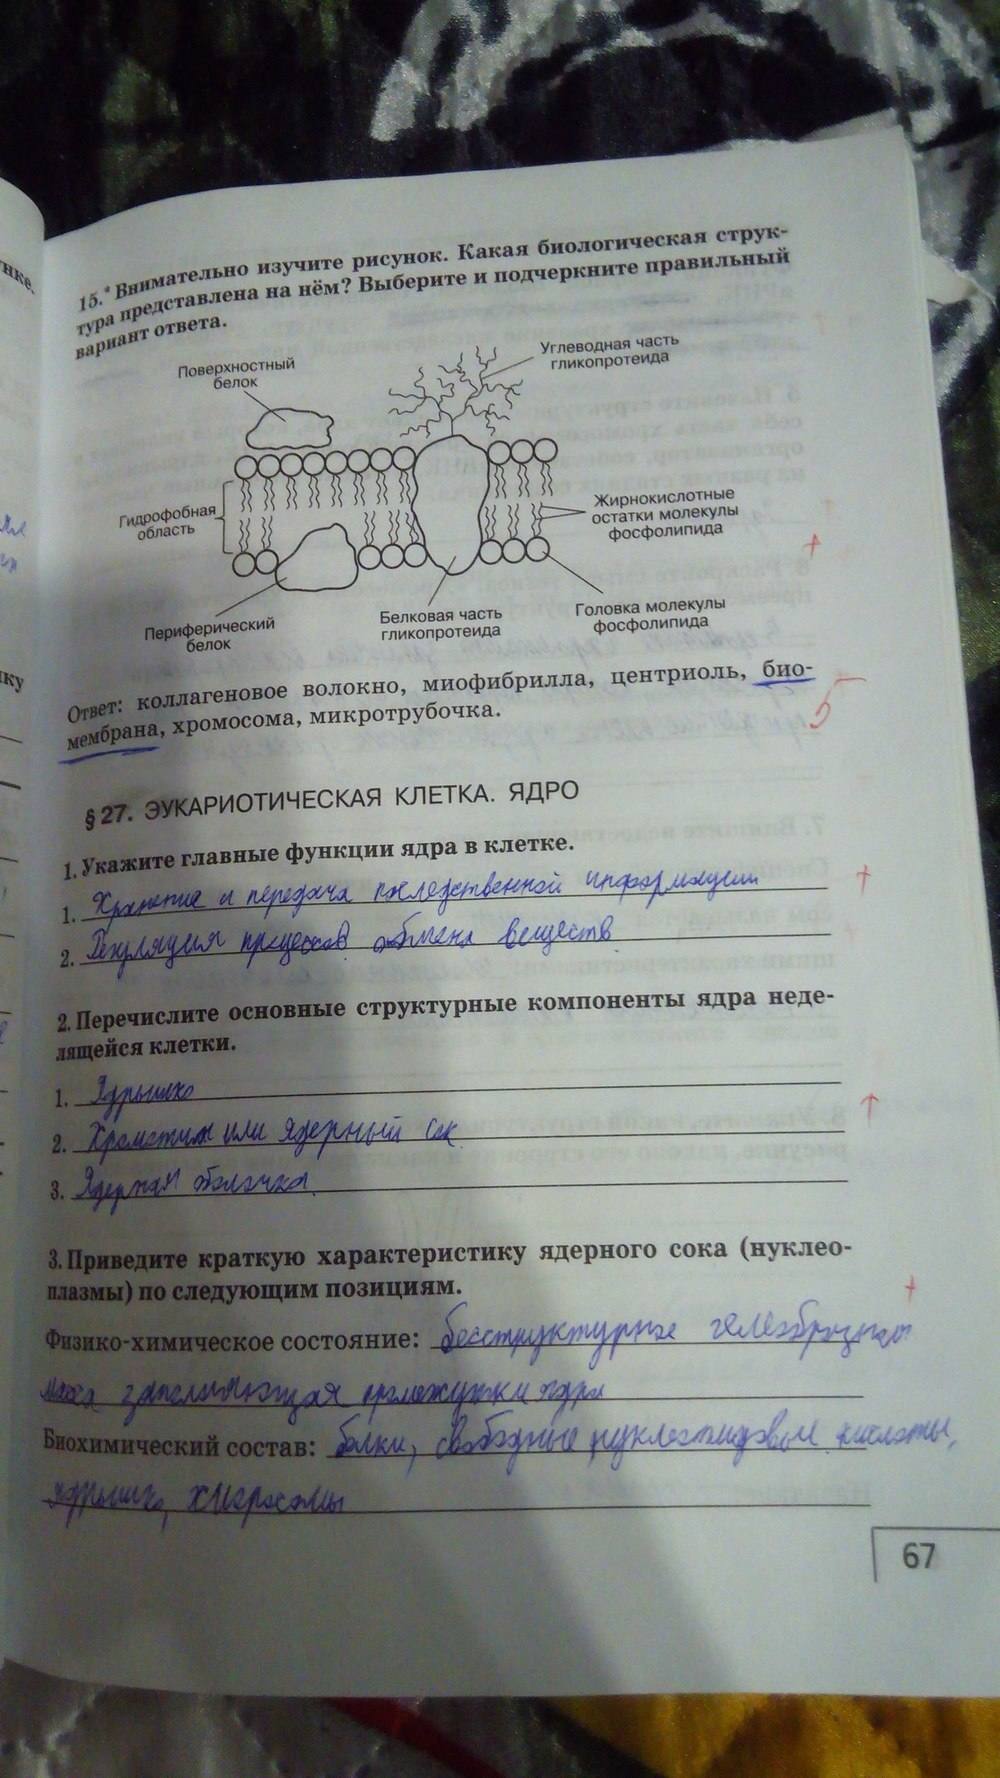 нке.
15.* Внимательно изучите рисунок. Какая биологическая струк-
тура представлена на нём? Выберите и подчеркните правильный
вариант ответа.
Поверхностный
белок
Углеводная часть
гликопротеида
Гидрофобная
область
Жирнокислотные
остатки молекулы
фосфолипида
Периферический
белок
Белковая часть
гликопротеида
Головка молекулы
фосфолипида
+
Ответ: коллагеновое волокно, миофибрилла, центриоль, био-
мембрана, хромосома, микротрубочка.
5-
§ 27. ЭУКАРИОТИЧЕСКАЯ КЛЕТКА. ЯДРО
1. Укажите главные функции ядра в клетке.
1. Хранение и передача последственной информации +
2. Регуляция процессов обмена веществ
2. Перечислите основные структурные компоненты ядра неде-
лящейся клетки.
1. Ядрышко
2. Хроматин или ядерный сок +
3. Ядерная оболочка.
3. Приведите краткую характеристику ядерного сока (нуклео-
плазмы) по следующим позициям. +
Физико-химическое состояние: бесструктурное гелеобразная
масса заполняющая промежутки ядра
Биохимический состав: белки, свободные нуклеотидовые кислоты,
ядрышко, хпоросомы
67